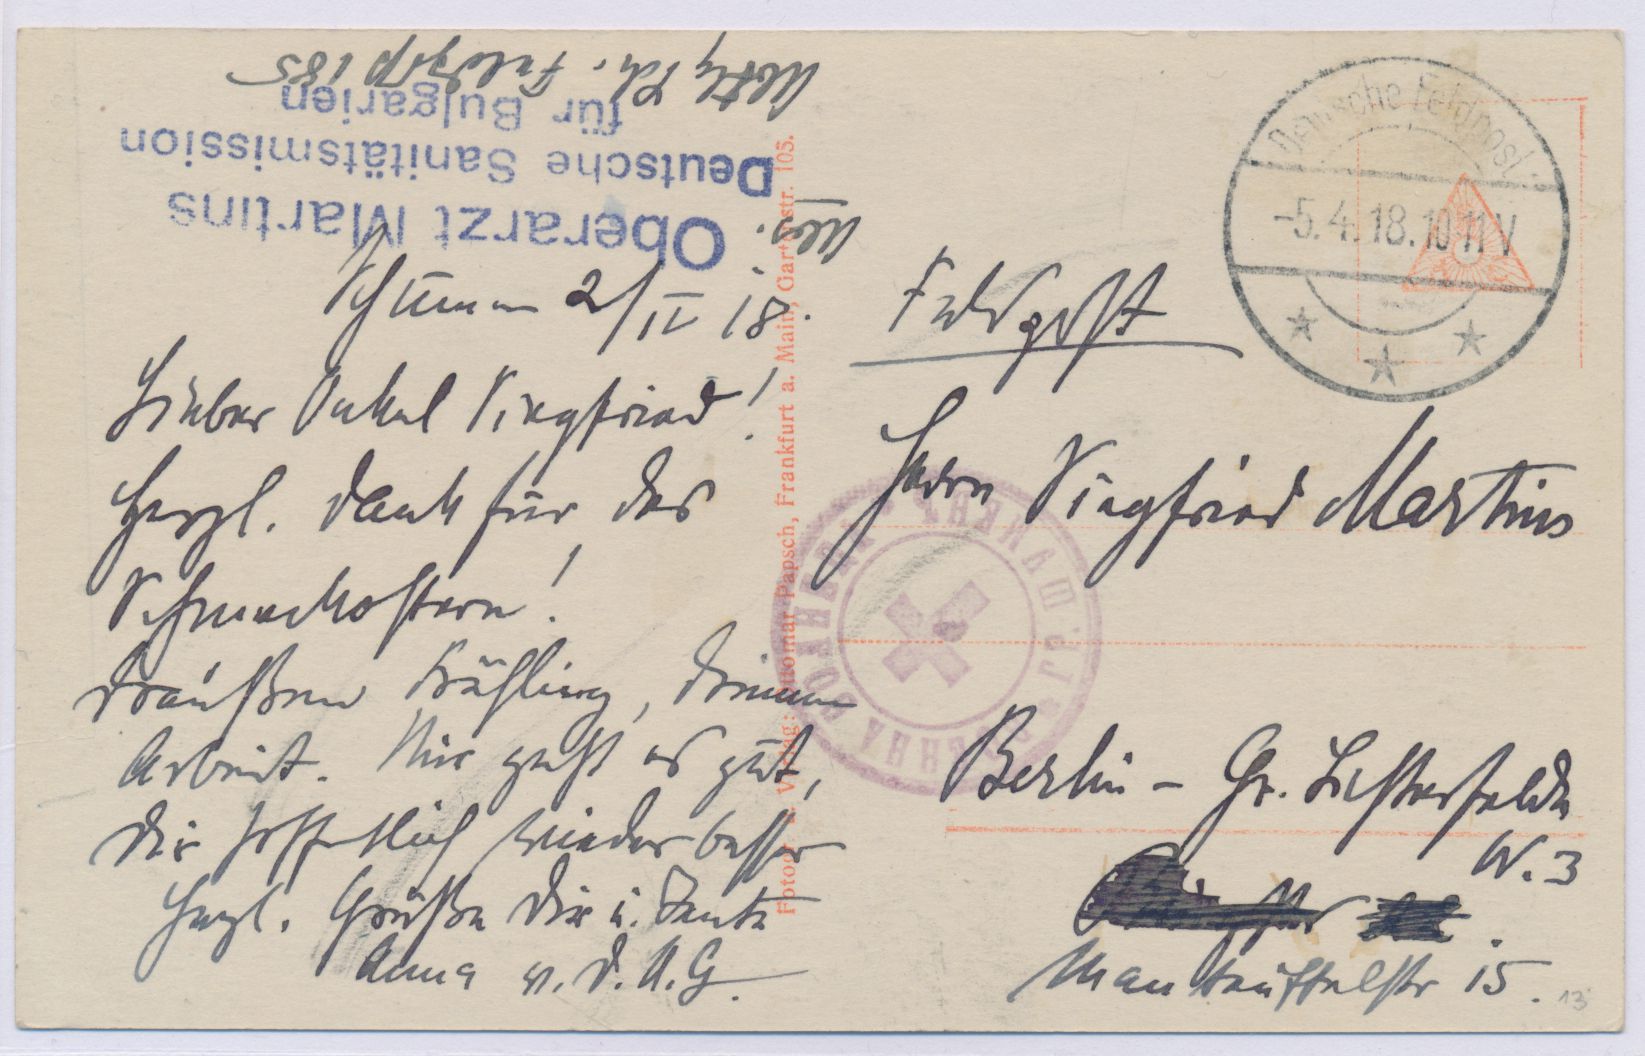 Abs.
Oberarzt Martins
Deutsche Sanitätsmission
für Bulgarien
Feldpost 185
Schumen 2/IV 18.
Lieber Onkel Siegfried!
Herzl. Dank für das
Schmuckostern!
Draußen Frühling, drinnen
Arbeit. Mir geht es gut,
Dir hoffentlich wieder besser
Herzl. Grüße Dir u. Tante
Anna v. D. A. G.
Fotogr. u. Verlag: Ottomar Papsch, Frankfurt a. Main, Gartenstr. 105.
Deutsche Feldpost
-5.4.18.10-11V
Feldpost
Herrn Siegfried Martins
Berlin - Gr. Lichterfelde
W. 3
Manteuffelstr 15.
13